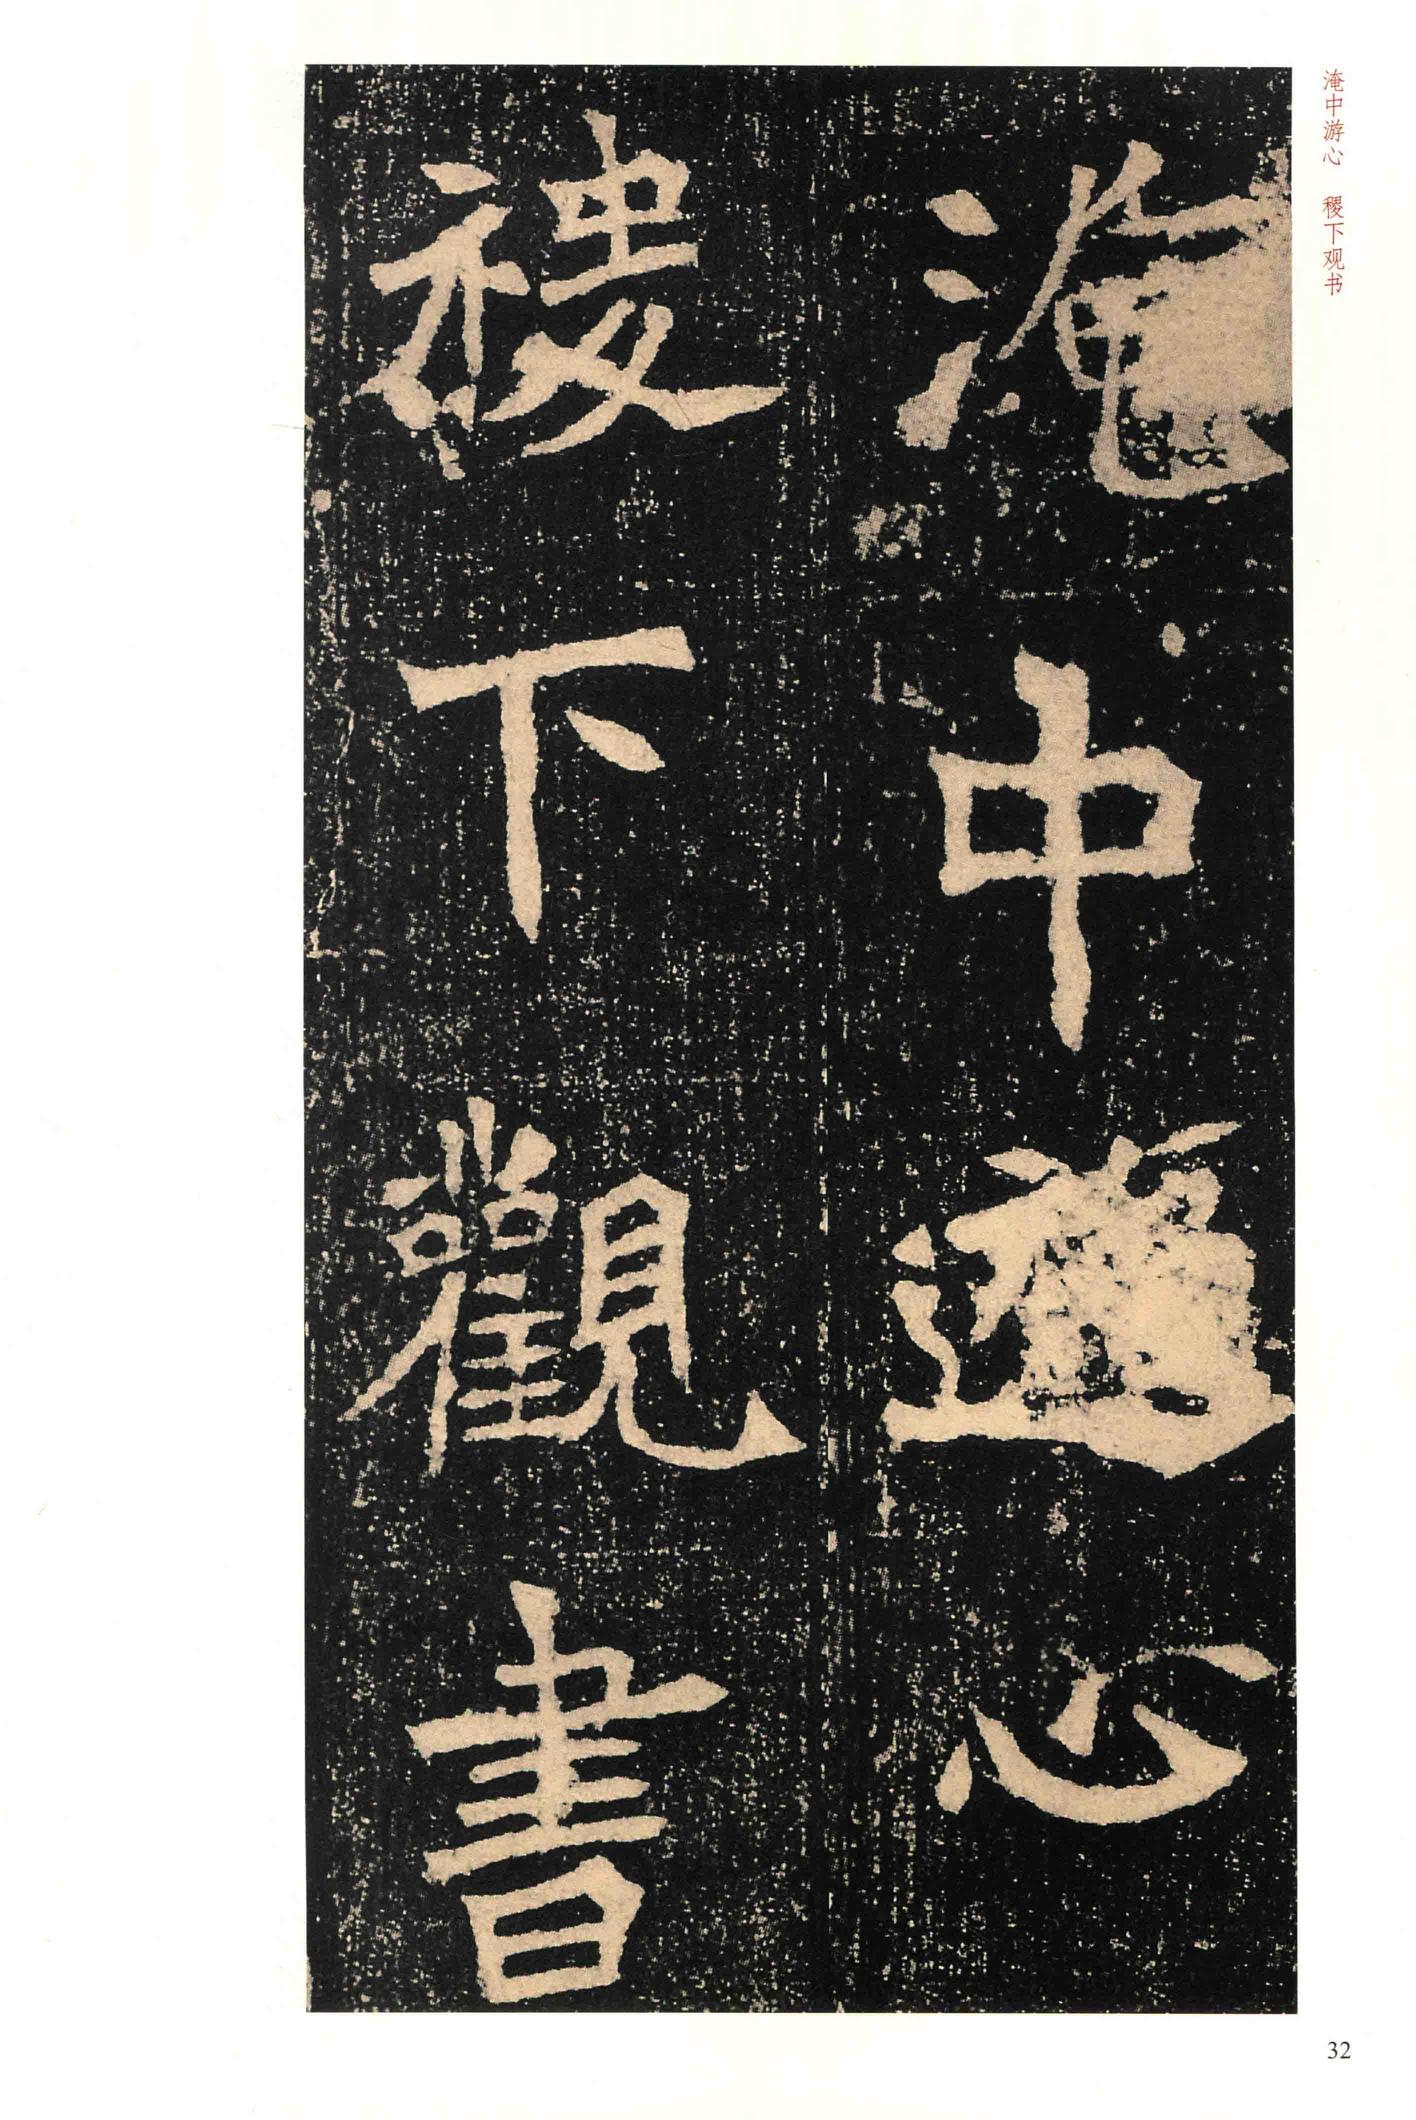 淹中游心 稷下观书
淹中遊心
稷下觀書
32